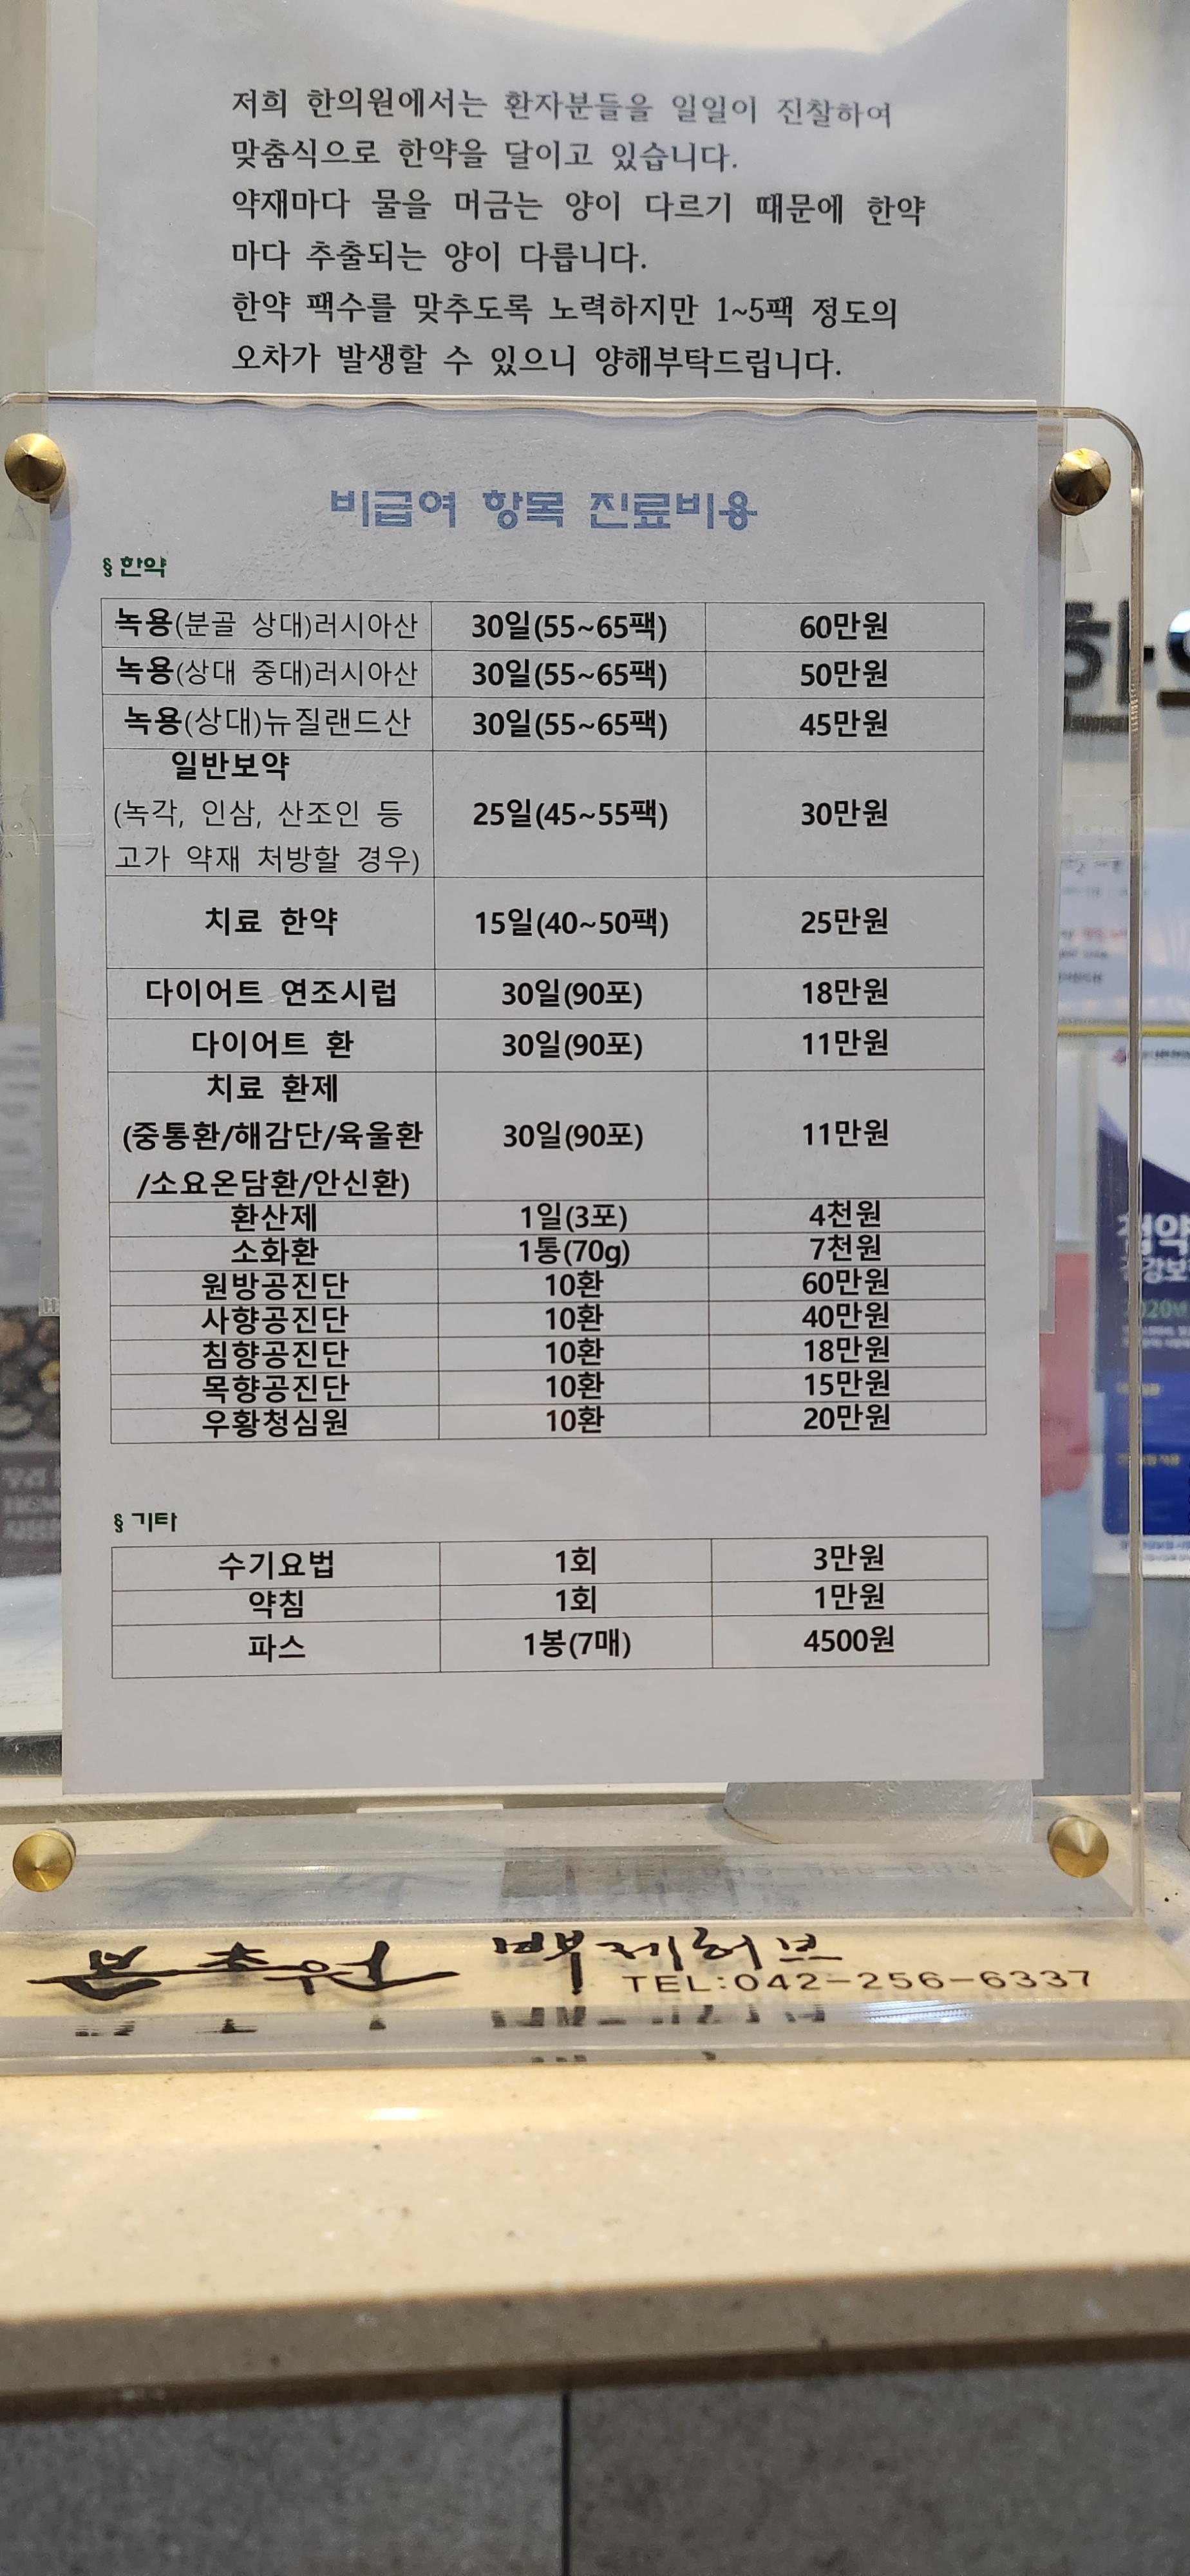 저희 한의원에서는 환자분들을 일일이 진찰하여
맞춤식으로 한약을 달이고 있습니다.
약재마다 물을 머금는 양이 다르기 때문에 한약
마다 추출되는 양이 다릅니다.
한약 팩수를 맞추도록 노력하지만 1~5팩 정도의
오차가 발생할 수 있으니 양해부탁드립니다.
비급여 항목 진료비용
§ 한약
녹용(분골 상대)러시아산 30일(55~65팩) 60만원
녹용(상대 중대)러시아산 30일(55~65팩) 50만원
녹용(상대)뉴질랜드산 30일(55~65팩) 45만원
일반보약
(녹각, 인삼, 산조인 등 25일(45~55팩) 30만원
고가 약재 처방할 경우)
치료 한약 15일(40~50팩) 25만원
다이어트 연조시럽 30일(90포) 18만원
다이어트 환 30일(90포) 11만원
치료 환제
(중통환/해감단/육울환 30일(90포) 11만원
/소요온담환/안신환)
환산제 1일(3포) 4천원
소화환 1통(70g) 7천원
원방공진단 10환 60만원
사향공진단 10환 40만원
침향공진단 10환 18만원
목향공진단 10환 15만원
우황청심원 10환 20만원
§ 기타
수기요법 1회 3만원
약침 1회 1만원
파스 1봉(7매) 4500원
본초원 백제허브
TEL:042-256-6337